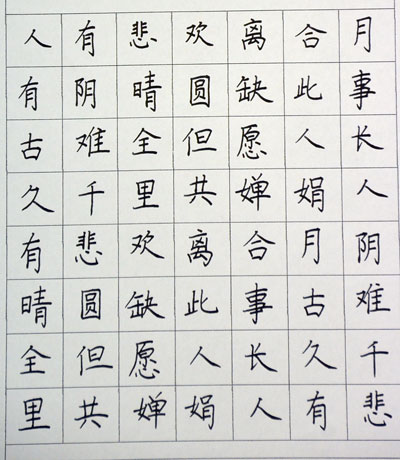 人有悲欢离合月
有阴晴圆缺此事
古难全但愿人长
久千里共婵娟人
有悲欢离合月阴
晴圆缺此事古难
全但愿人长久千
里共婵娟人有悲